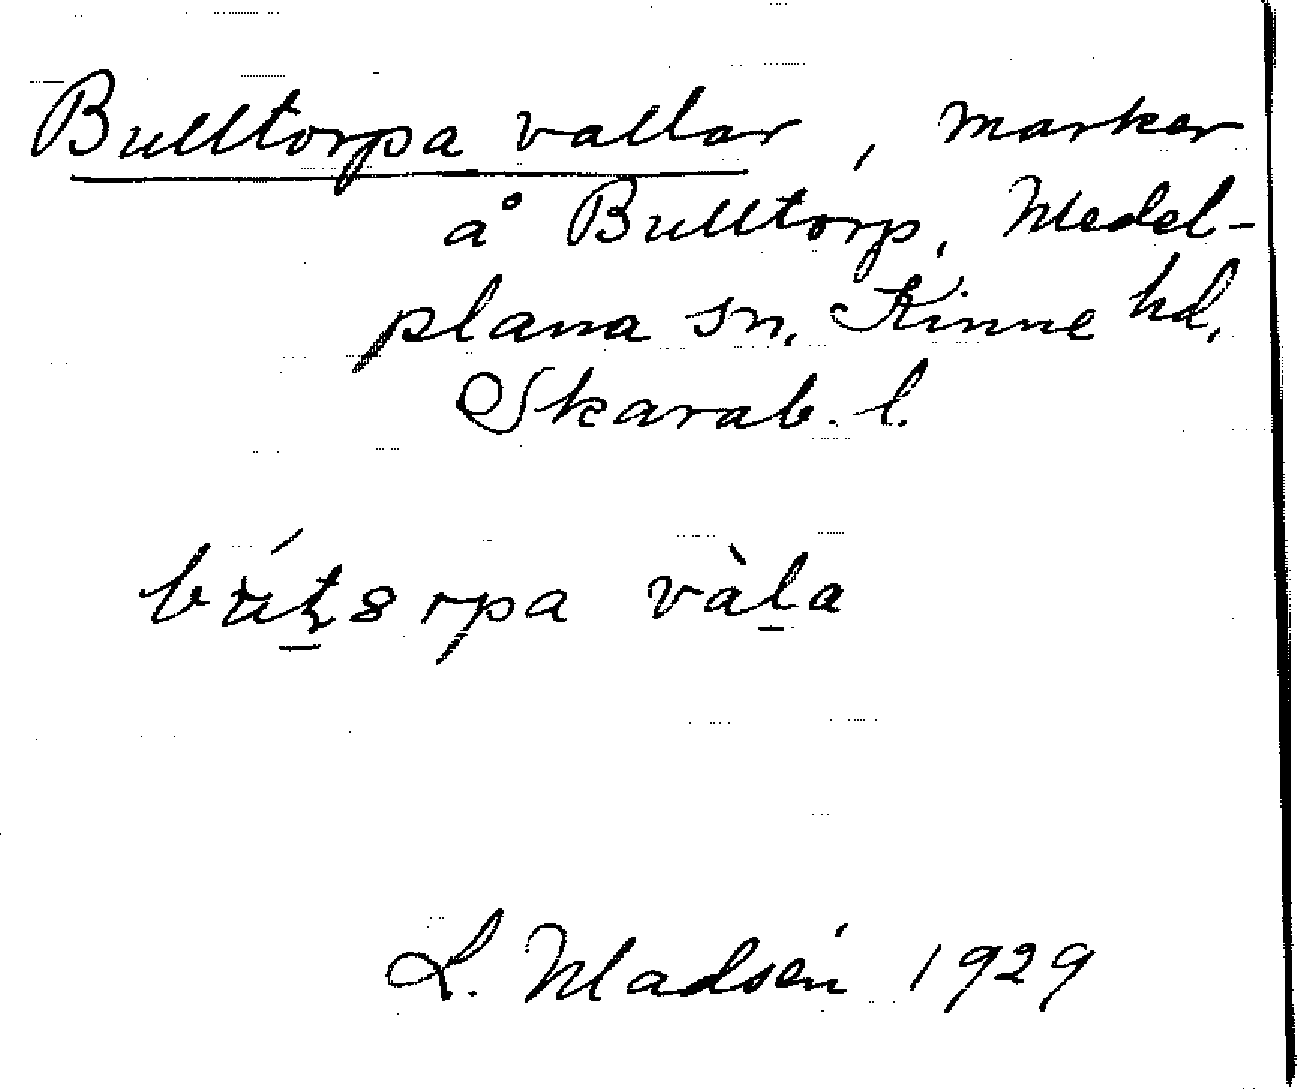 Bulltorpa vallar, marker
å Bulltorp, Medel-
plana sn, Kinne hd,
Skarab. l.
vàl̠a
L. Madsén 1929